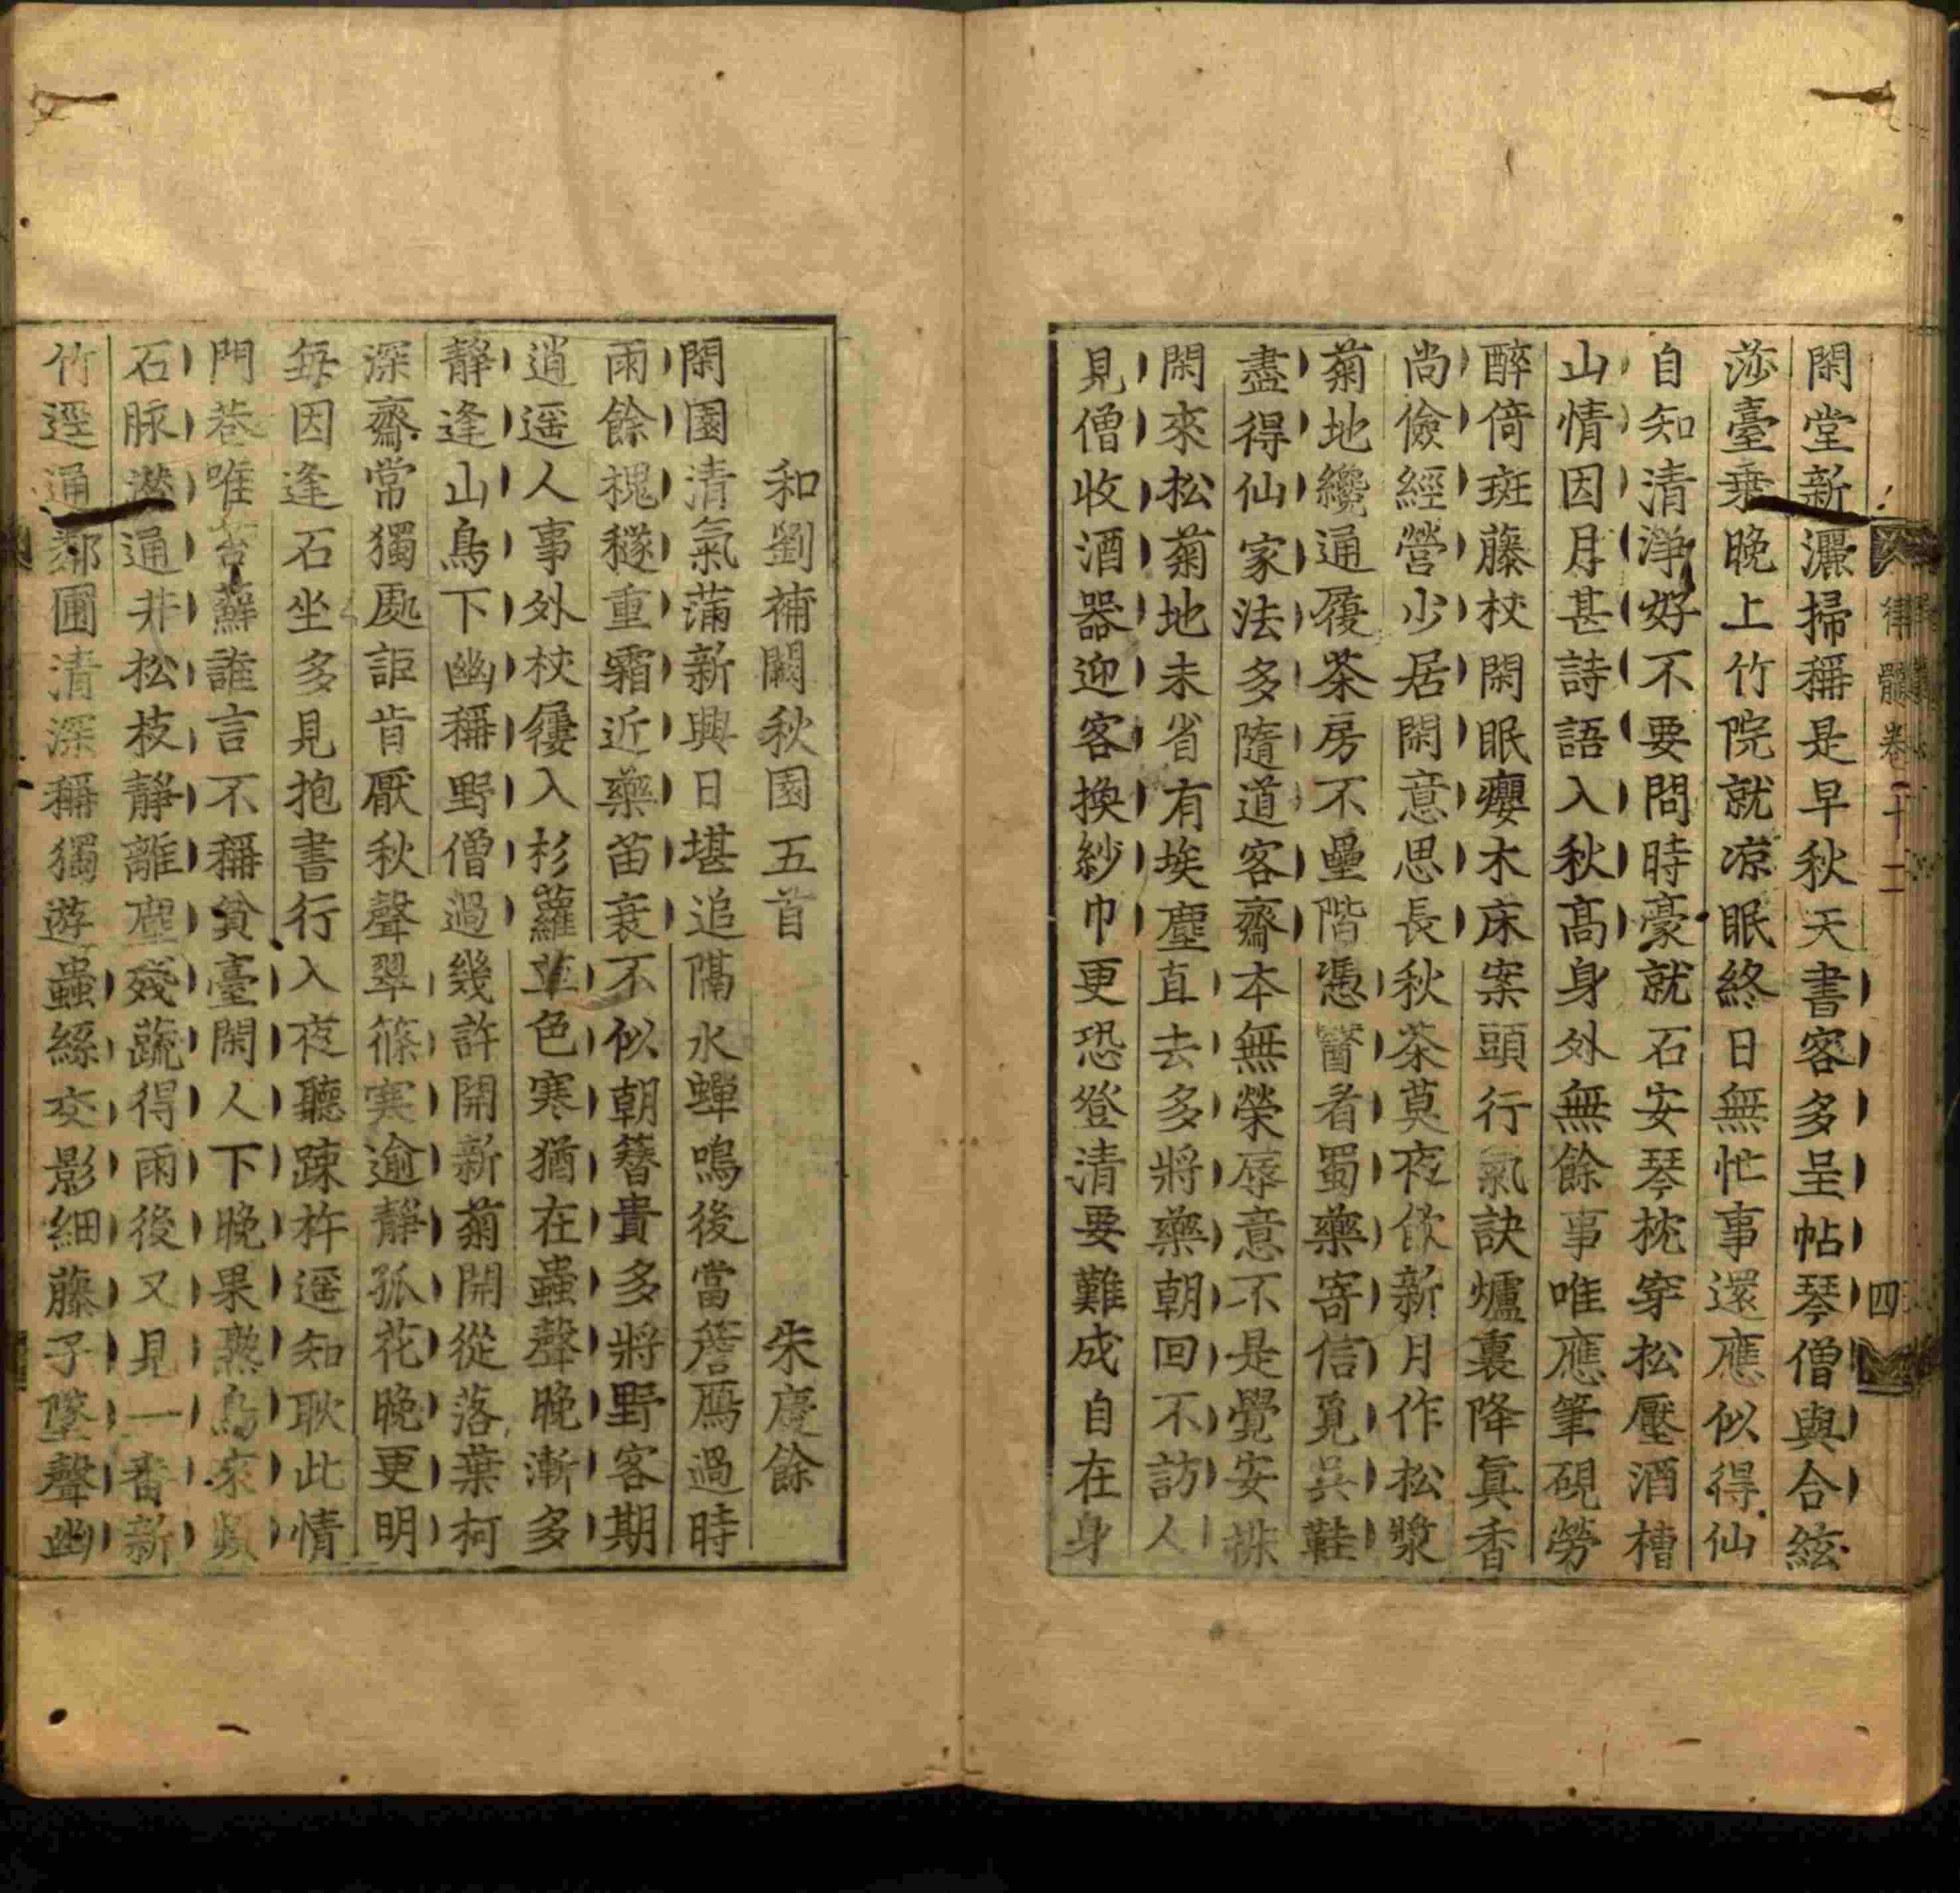 律髓卷二十二
四
閑堂新灑掃稱是早秋天書客多呈帖琴僧與合絃
莎臺乗晚上竹院就凉眠終日無忙事還應似得仙
自知清淨好不要問時豪就石安琴枕穿松壓酒槽
山情因月甚詩語入秋髙身外無餘事唯應筆硯勞
醉倚斑藤杖閑眠癭木床案頭行氣訣爐裏降真香
尚儉經營少居閑意思長秋茶莫夜飲新月作松漿
菊地纔通履茶房不壘階憑醫看蜀藥寄信覓吳鞋
盡得仙家法多隨道客齋本無榮辱意不是覺安排
閑來松菊地未省有埃塵直去多將藥朝回不訪人
見僧收酒器迎客換紗巾更恐登清要難成自在身
和劉補闕秋園五首 朱慶餘
閑園清氣滿新興日堪追隔水蟬鳴後當簷鴈過時
雨餘槐穟重霜近藥苗衰不似朝簪貴多將野客期
逍遥人事外杖屨入杉蘿草色寒猶在蟲聲晚漸多
靜逢山鳥下幽稱野僧過幾許開新菊開從落葉柯
深齋常獨處詎肯厭秋聲翠篠寒逾靜孤花晚更明
每因逢石坐多見抱書行入夜聽疎杵遥知耿此情
門巷唯苔蘚誰言不稱貧臺閑人下晚果熟鳥來頻
石脉濕通井松枝靜離塵殘蔬得雨後又見一番新
竹逕通鄰圃清深稱獨遊蟲絲交影細藤子墜聲幽